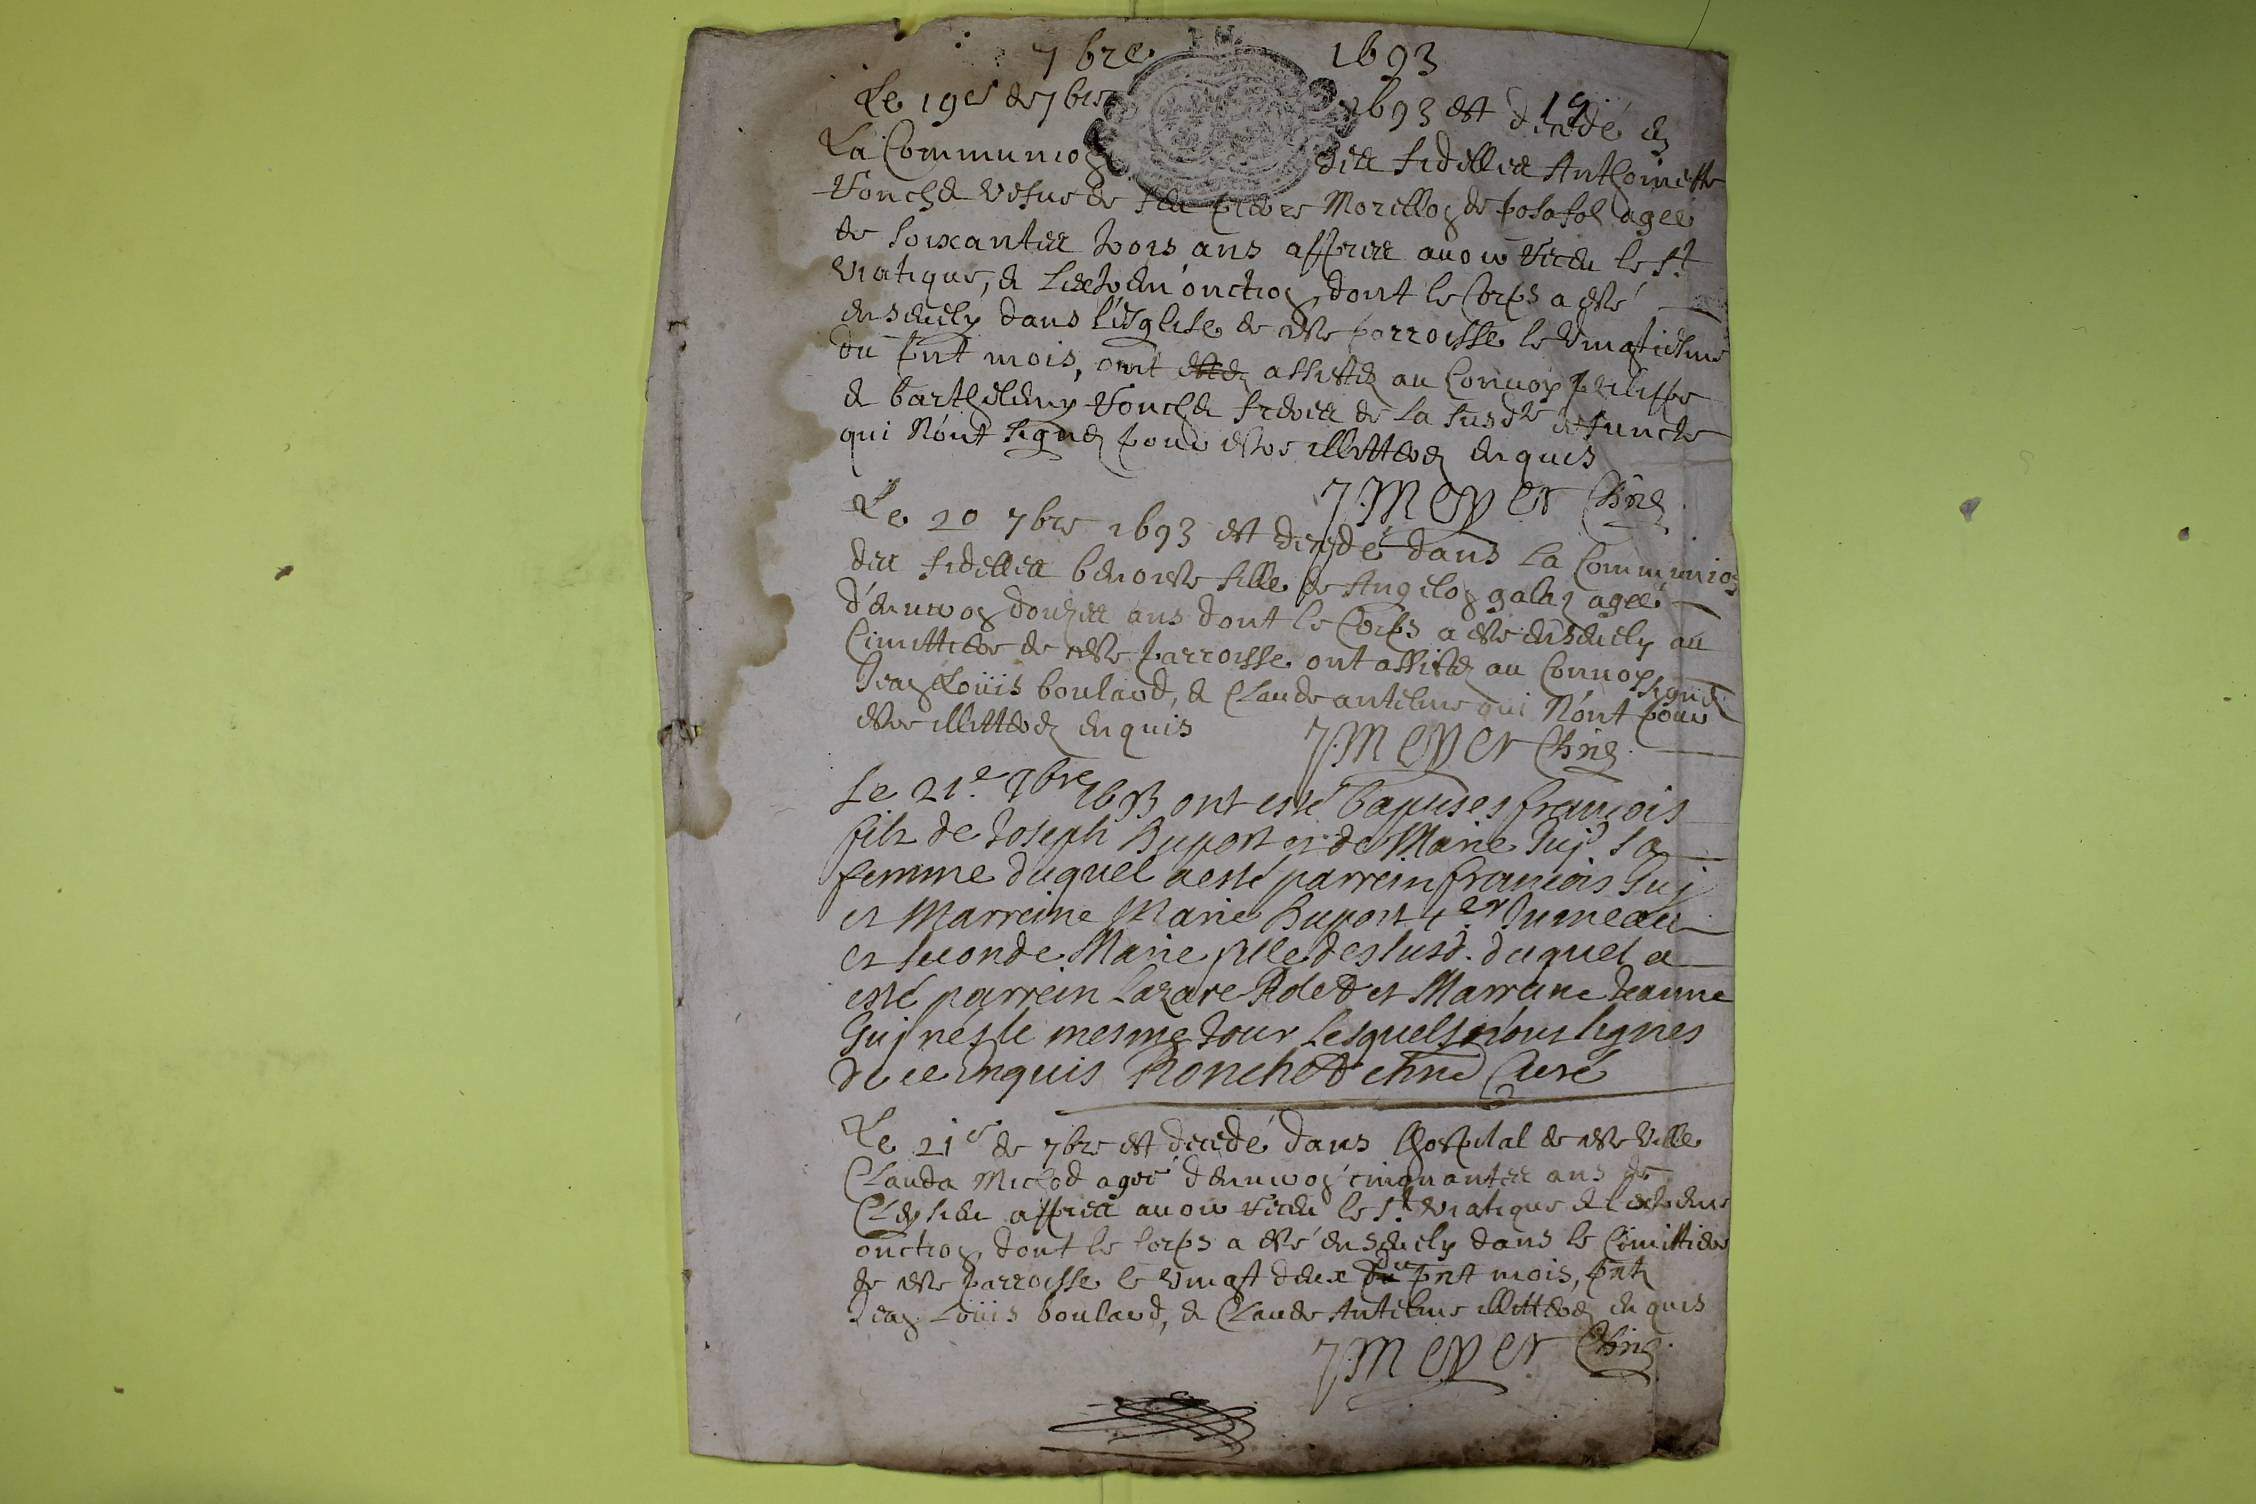 7bre 1693
19
Le 19e de 7bre 1693 est decedé en
La Communion des fidelles Anthoinette
Ronchet vefve de feu pierre Morellon de posafol agee
de soixantes trois ans appres avoir Receu le st
viatique, et l'extrem' onction, dont le Corps a esté
ensevely dans l'esglise de nre parroisse le vingtiesme
du pnt mois, ont assistez au Convoy philippe
et barthelemy Ronchet freres de la susde defuncte
qui N'ont signez pour estre illitterez enquis
J. Meyer Chne
Le 20 7bre 1693 est decedé dans La Communion
des fidelles benoiste fille de Angelo galley agee
d'environ douzes ans dont le Corps a esté ensevely au
Cimittiere de nre parroisse ont assistez au Convoy
Jean Loüis boulard, et Claude antelme qui N'ont signez pour
estre illitterez enquis J. Meyer Chne.
Le 21.e 7bre 1693 ont esté baptises francois
fils de Joseph Buport et de Marie Guy sa
femme duquel a esté parrein francois Guy
et Marreine Marie Buport 1er Jumeau
et seconde Marie fille des susd. duquel a
esté parrein Lazare Rolet et Marreine Jeanne
Guy nés le mesme Jour lesquels n'ont signes
de ce enquis Ronchet chne Curé
Le 21e de 7bre est decedé dans l'hospital de nre ville
Clauda Miclod agee d'environ cinquantes ans de
Cleysieu appres avoir Receu le st viatique et l'extreme
onction, dont le Corps a esté ensevely dans le Cimittiere
de nre parroisse le vingt deux du pnt mois, pnts
Jean Loüis boulard, et Claude Antelme illitterez enquis
J. Meyer Chne.